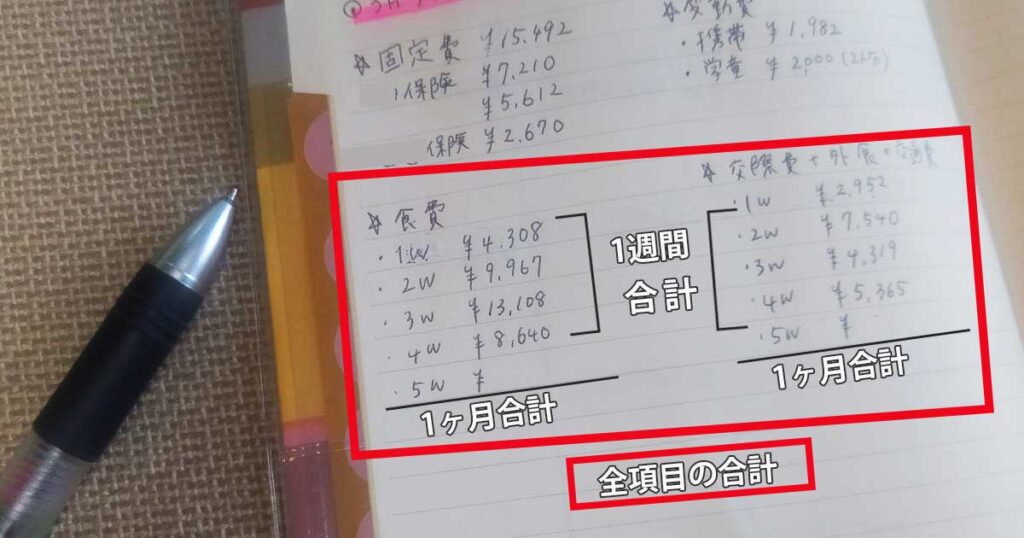 ✩固定費 ¥15,492
保険 ¥7,210
¥5,612
保険 ¥2,670
✩変動費
・携帯 ¥1,982
・学童 ¥2,000(2人分)
✩食費
・1w ¥4,308
・2w ¥9,967
・3w ¥13,108
・4w ¥8,640
・5w ¥
1ヶ月合計
1週間
合計
✩交際費+外食+交通費
・1w ¥2,952
・2w ¥7,540
・3w ¥4,319
・4w ¥5,365
・5w ¥
1ヶ月合計
全項目の合計